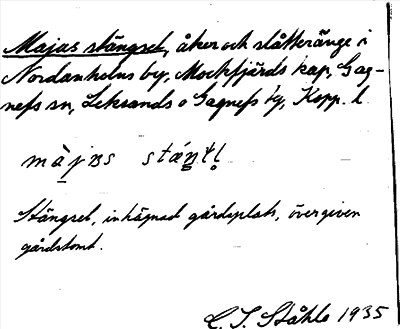 Majas stängsel, åker och slåtteränge i
Nordanholns by, Mockfjärds kap, Gag-
nefs sn, Leksands o Gagnefs tg, Kopp. l.
màjas stáṉt̩l̥
Stängsel, inhägnad gårdsplats, övergiven
gårdstomt.
C. I. Ståhle 1935